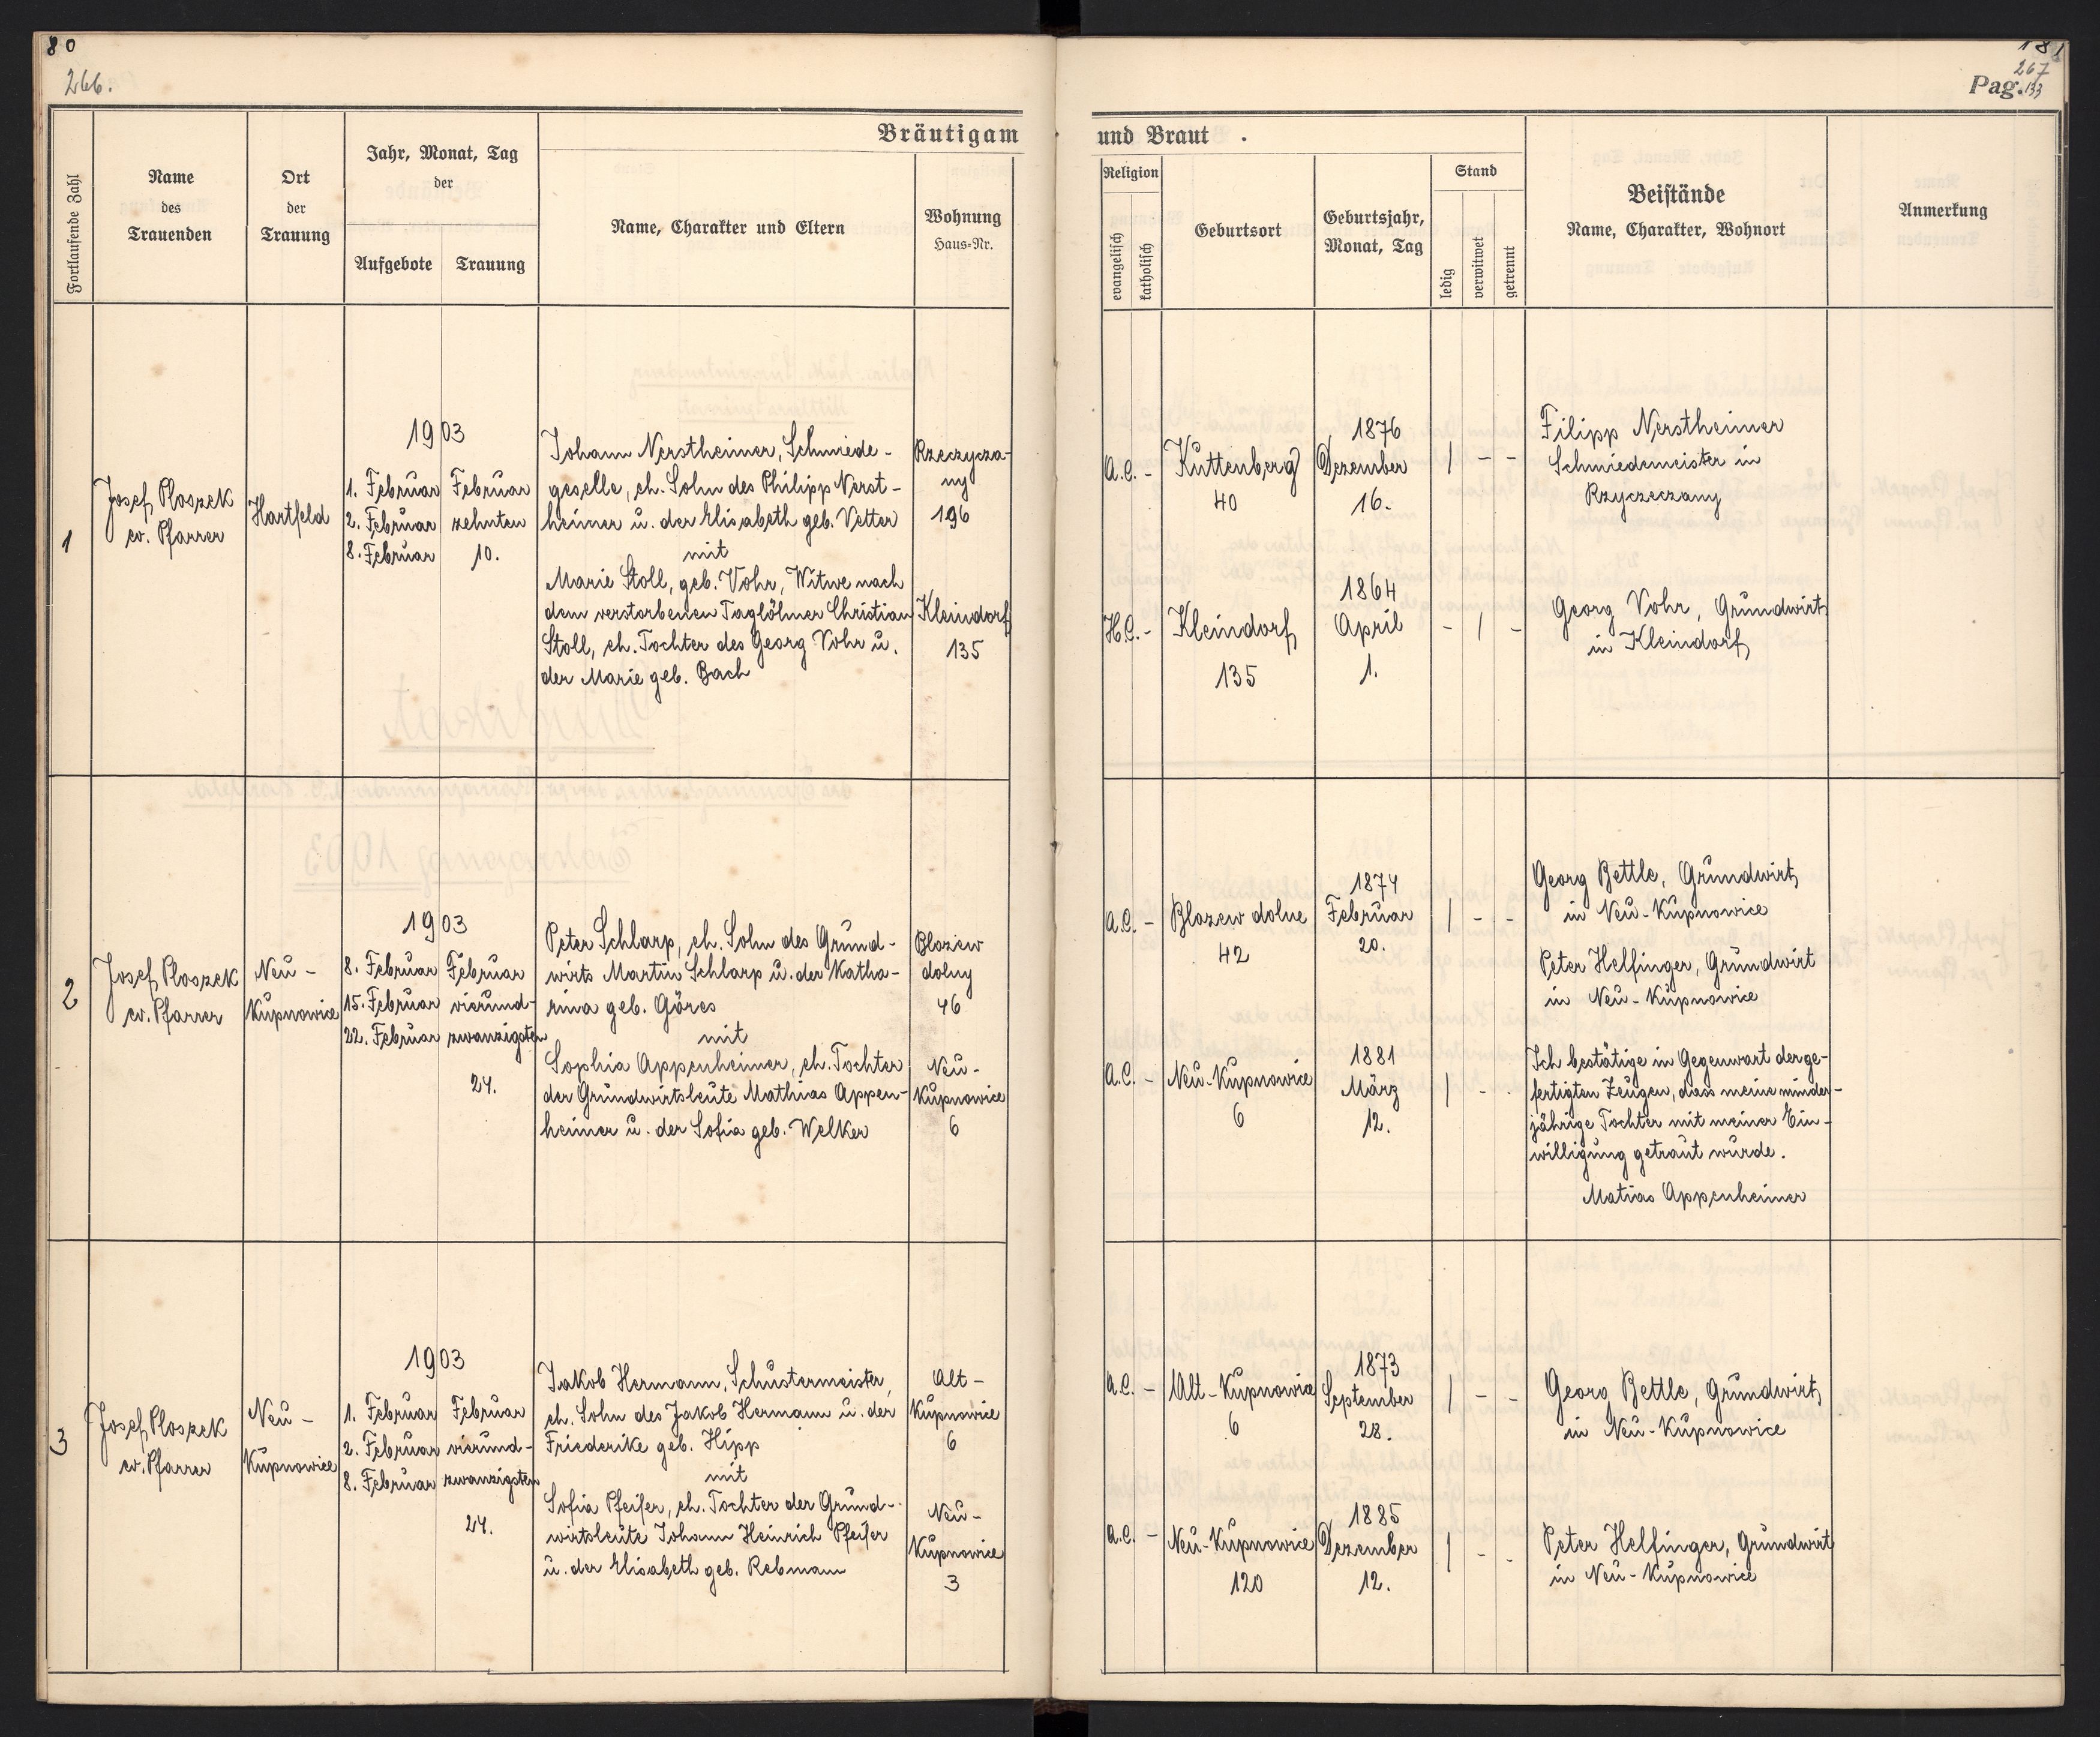 80
266.
181
267
Pag. 133
Bräutigam
und Braut
Fortlaufende Zahl
Name
des
Trauenden
Ort
der
Trauung
Jahr, Monat, Tag
der
Aufgebote
Trauung
Name, Charakter und Eltern
Wohnung
Haus=Nr.
Religion
evangelisch
katholisch
Geburtsort
Geburtsjahr,
Monat, Tag
Stand
ledig
verwitwet
getrennt
Beistände
Name, Charakter, Wohnort
Anmerkung
1
Josef Ploszek
ev. Pfarrer
Hartfeld
1903
1. Februar
2. Februar
8. Februar
Februar
zehnten
10.
Johann Nerstheimer, Schmiede-
geselle, eh. Sohn des Philipp Nerst-
heimer u. der Elisabeth geb. Vetter
mit
Marie Stoll, geb. Vohr, Witwe nach
dem verstorbenen Taglöhner Christian
Stoll, eh. Tochter des Georg Vohr u.
der Marie geb. Bach
Rzeczycza-
ny
196
Kleindorf
135
A.C. -
Kuttenberg
40
1876
Dezember
16.
| - -
Filipp Nerstheimer
Schmiedemeister in
Rzyczeczany
H.C. -
Kleindorf
135
1864
April
1.
- | -
Georg Vohr, Grundwirt
in Kleindorf
2
Josef Ploszek
ev. Pfarrer
Neu -
Kupnowice
1903
8. Februar
15. Februar
22. Februar
Februar
vierund-
zwanzigsten
24.
Peter Schlarp, eh. Sohn des Grund-
wirts Martin Schlarp u. der Katha-
rina geb. Göres
mit
Sophia Appenheimer, eh. Tochter
der Grundwirtsleute Mathias Appen-
heimer u. der Sofia geb. Welker
Blozew
dolny
46
Neu -
Kupnowice
6
A.C. -
Blozew dolne
42
1874
Februar
20.
| - -
Georg Bettle, Grundwirt
in Neu-Kupnowice
Peter Helfinger, Grundwirt
in Neu-Kupnowice
A.C. -
Neu-Kupnowice
6
1881
März
12.
| - -
Ich bestätige in Gegenwart derge-
fertigten Zeugen, dass meine minder-
jährige Tochter mit meiner Ein-
willigung getraut wurde.
Matias Appenheimer
3
Josef Ploszek
ev. Pfarrer
Neu -
Kupnowice
1903
1. Februar
2. Februar
8. Februar
Februar
vierund-
zwanzigsten
24.
Jakob Hermann, Schustermeister,
eh. Sohn des Jakob Hermann u. der
Friederike geb. Hipp
mit
Sofia Pfeifer, eh. Tochter der Grund-
wirtsleute Johann Heinrich Pfeifer
u. der Elisabeth geb. Rebmann
Alt -
Kupnowice
6
Neu -
Kupnowice
3
A.C. -
Alt-Kupnowice
6
1873
September
28.
| - -
Georg Bettle, Grundwirt
in Neu-Kupnowice
A.C. -
Neu-Kupnowice
120
1885
Dezember
12.
| - -
Peter Helfinger, Grundwirt
in Neu-Kupnowice